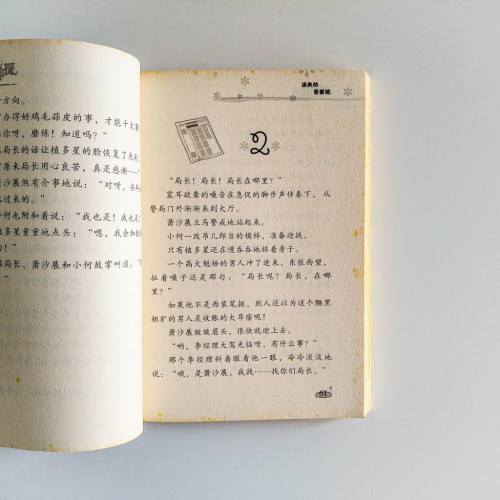 探
方向。
办得好鸡毛蒜皮的事，才能干大事
你呀，磨炼！知道吗？”
局长的话让植多星的脸恢复了光彩
原来局长用心良苦，真是感谢
萧沙展煞有介事地说：“对呀，当年
过来的。
小何也附和着说：“我也是！我也是
植多星重重地点头：“嗯，我会加
的！”
局长、萧沙展和小何鼓掌叫道：“
消失的
2
“局长！局长！局长在哪里？”
震耳欲聋的嗓音在急促的脚步声伴奏下，从
警局门外渐渐来到大厅。
萧沙展立马警戒地站起来。
小何一改吊儿郎当的模样，准备迎战。
只有植多星还在慢吞吞地抹着身子。
一个高大魁梧的男人冲了进来，东张西望，
扯着嗓子还是那句：“局长呢？局长，在哪
里？”
如果他不是西装笔挺，别人还以为这个黝黑
粗犷的男人是收账的大耳窿呢！
萧沙展皱皱眉头，很快就迎上去。
“哟，李经理大驾光临呀，有什么事？”
那个李经理斜着眼看他一眼，冷冷淡淡地
说：“哦，是萧沙展，我找……找你们局长。”
61